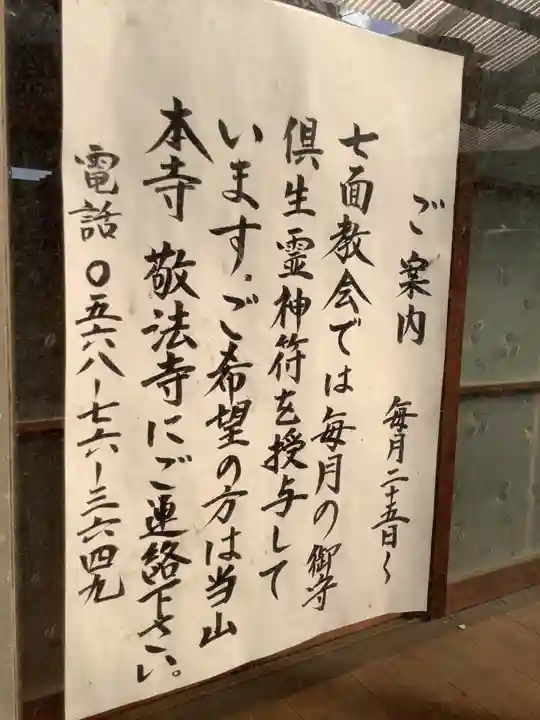 ご案内 毎月二十五日〜
七面教会では毎月の御守
倶生霊神符を授与して
います。ご希望の方は当山
本寺 敬法寺にご連絡下さい。
電話 〇五六八-七六-三六四九